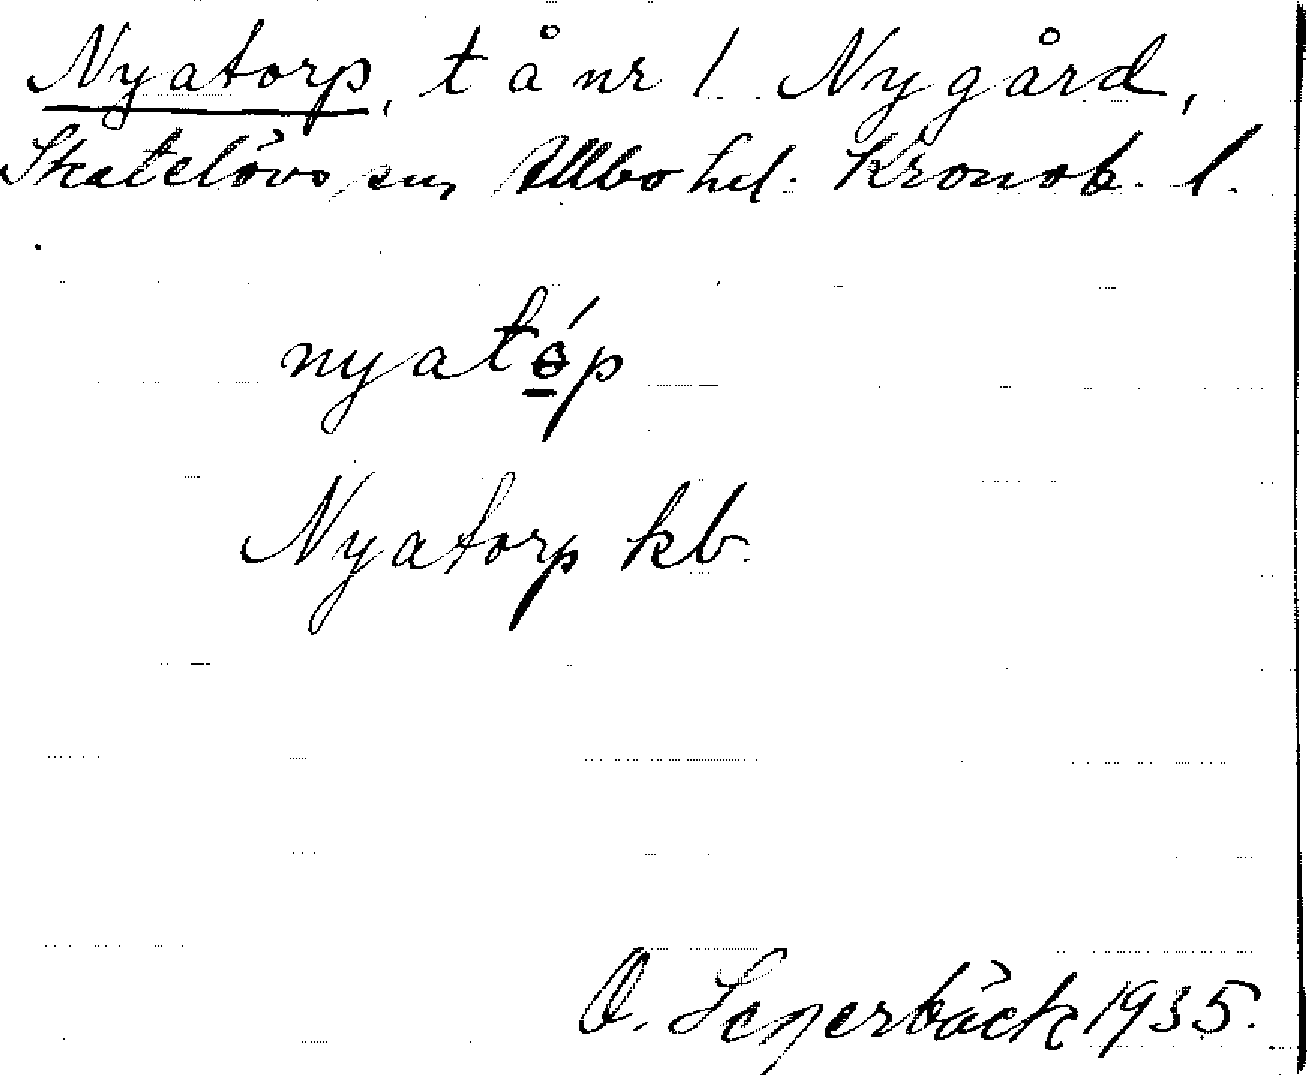 Nyatorp, t å nr 1 Nygård,
Skatelövs sn, Allbo hd. Kronob. l.
nyatǿp
Nyatorp kb.
O. Segerbäck 1935.